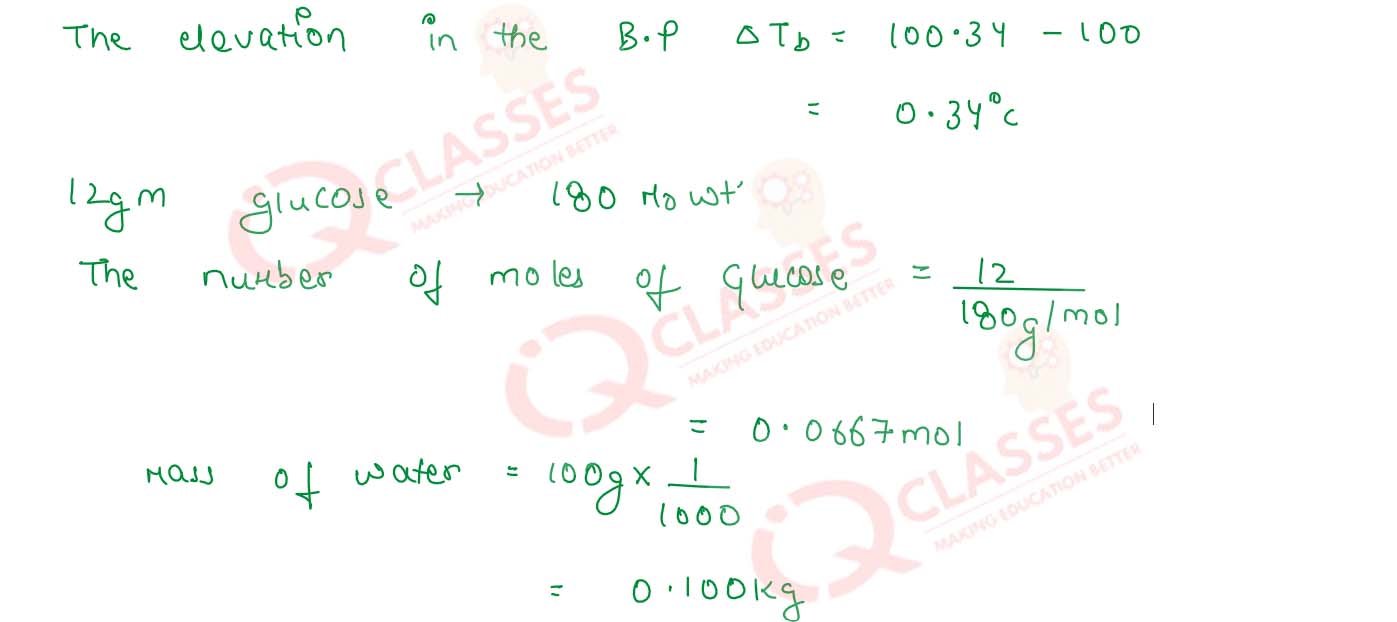 The elevation in the B.P ΔTb = 100.34 - 100
= 0.34°c
12gm glucose → 180 Mo wt'
The number of moles of glucose = 12
180g/mol
= 0.0667mol
Mass of water = 100g x 1
1000
= 0.100kg
IQ CLASSES
MAKING EDUCATION BETTER
IQ CLASSES
MAKING EDUCATION BETTER
IQ CLASSES
MAKING EDUCATION BETTER